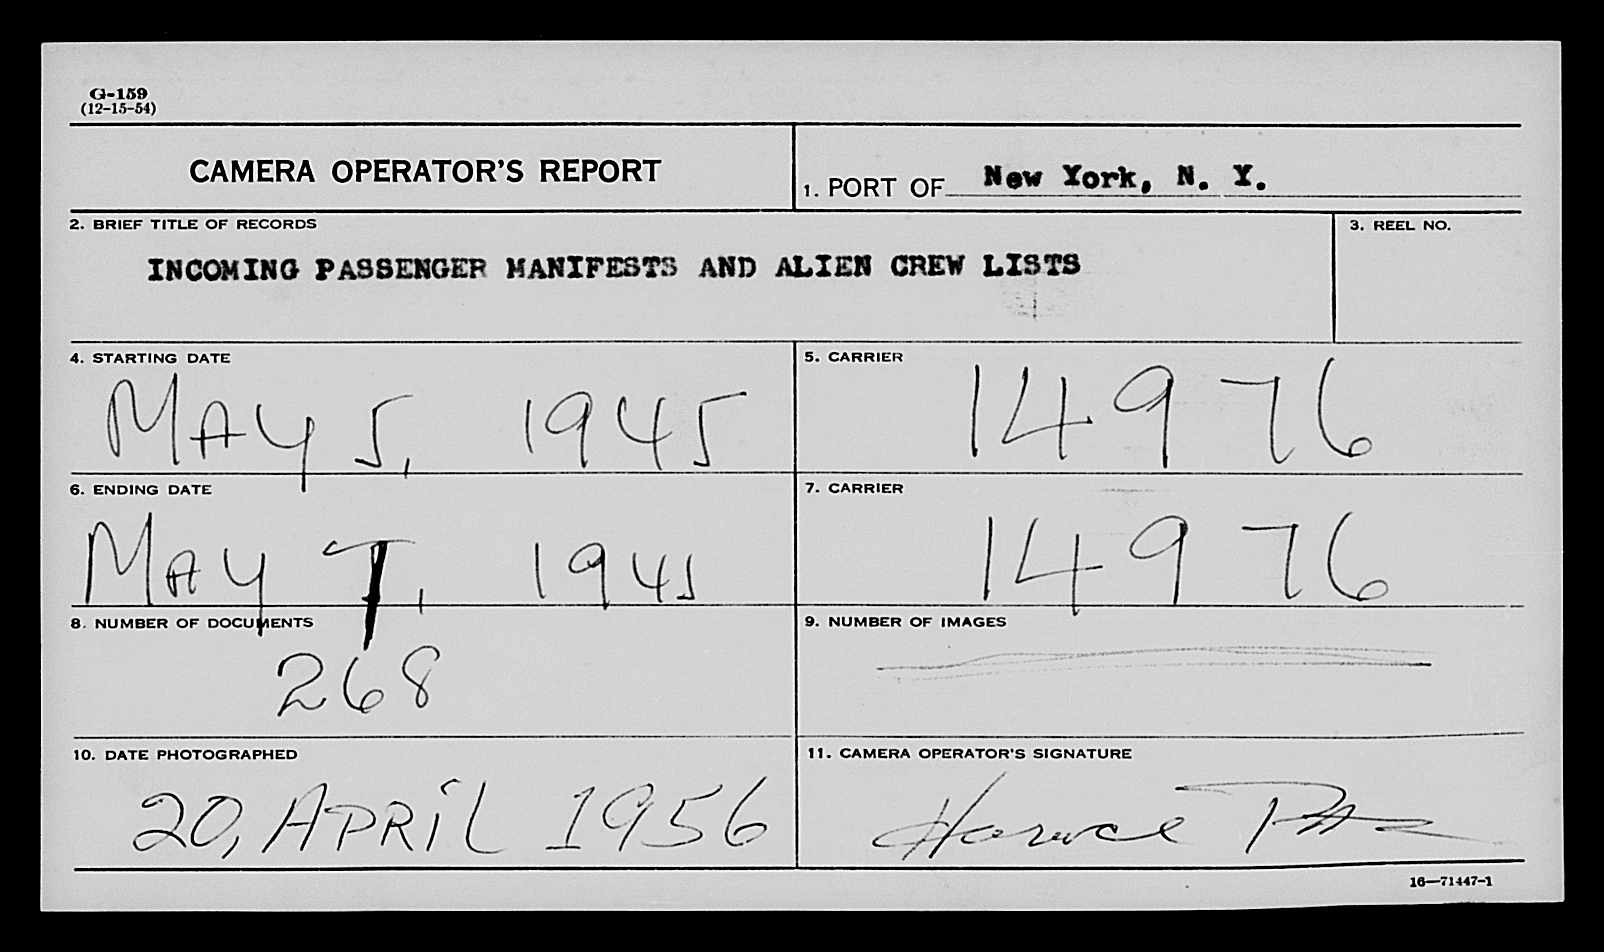 G-159
(12-15-54)
CAMERA OPERATOR'S REPORT
1. PORT OF New York, N. Y.
2. BRIEF TITLE OF RECORDS
3. REEL NO.
INCOMING PASSENGER MANIFESTS AND ALIEN CREW LISTS
4. STARTING DATE
5. CARRIER
MAY 5, 1945
14976
6. ENDING DATE
7. CARRIER
MAY 7, 1945
14976
8. NUMBER OF DOCUMENTS
9. NUMBER OF IMAGES
268
10. DATE PHOTOGRAPHED
11. CAMERA OPERATOR'S SIGNATURE
20, APRIL 1956
Horace
16—71447-1